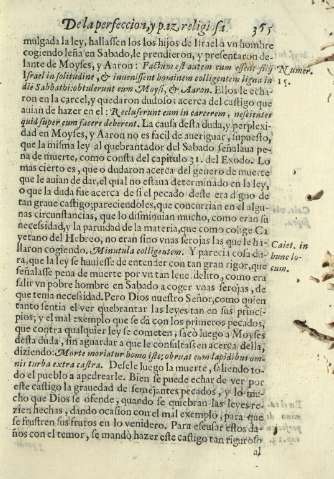 De la perfeccion, y paz religiosa 365
mulgada la ley, hallassen los hijos de Israel a vn hombre
cogiendo leña en Sabado, le prendieron, y presentaron de-
lante de Moyses, y Aaron: Factum est autem cum essent filij
Israel in solitudine, & inuenissent hominem colligentem ligna in
die Sabbathi: obtulerunt eum Moysi, & Aaron. Ellos le echa-
ron en la carcel, y quedaron dudosos acerca del castigo que
auian de hazer en el: Recluserunt eum in carcerem, nescientes
quid super eum facere deberent. La causa desta duda, y perplexi-
dad en Moyses, y Aaron no es facil de aueriguar, supuesto,
que la misma ley al quebrantador del Sabado señalaua pe
na de muerte, como consta del capitulo 31. del Exodo. Lo
mas cierto es, que o dudaron acerca del genero de muerte
que le auian de dar, el qual no estaua determinado en la ley,
o que la duda fue acerca de si el pecado deste era digno de
tan graue castigo; pareciendoles, que concurrian en el algu-
nas circunstancias, que lo disminuian mucho, como eran su
necessidad, y la paruidad de la materia, que como colige Ca
yetano del Hebreo, no eran sino vnas serojas las que le ha-
llaron cogiendo, Minutula colligentem. Y parecia cosa du-
ra, que la ley se huuiesse de entender con tan gran rigor, que
señalasse pena de muerte por vn tan leue delito, como era
salir vn pobre hombre en Sabado a coger vnas serojas, de
que tenia necessidad. Pero Dios nuestro Señor, como quien
tanto sentia el ver quebrantar las leyes tan en sus princi-
pios; y el mal exemplo que se da con los primeros pecados,
que contra qualquier ley se cometen, sacò luego a Moyses
desta duda, sin aguardar a que le consultassen acerca della,
diziendo: Morte moriatur homo iste; obruat eum lapidibus om-
nis turba extra castra. Desele luego la muerte, saliendo to-
do el pueblo a apedrearle. Bien se puede echar de ver por
este castigo la grauedad de semejantes pecados, y lo mu-
cho que Dios se ofende, quando se quebran las leyes re-
zien hechas, dando ocasion con el mal exemplo, para que
se frustren sus frutos en lo venidero. Para escusar estos da-
ños con el temor, se mandò hazer este castigo tan riguroso
al
Numer.
15.
Caiet. in
hunc lo-
cum.